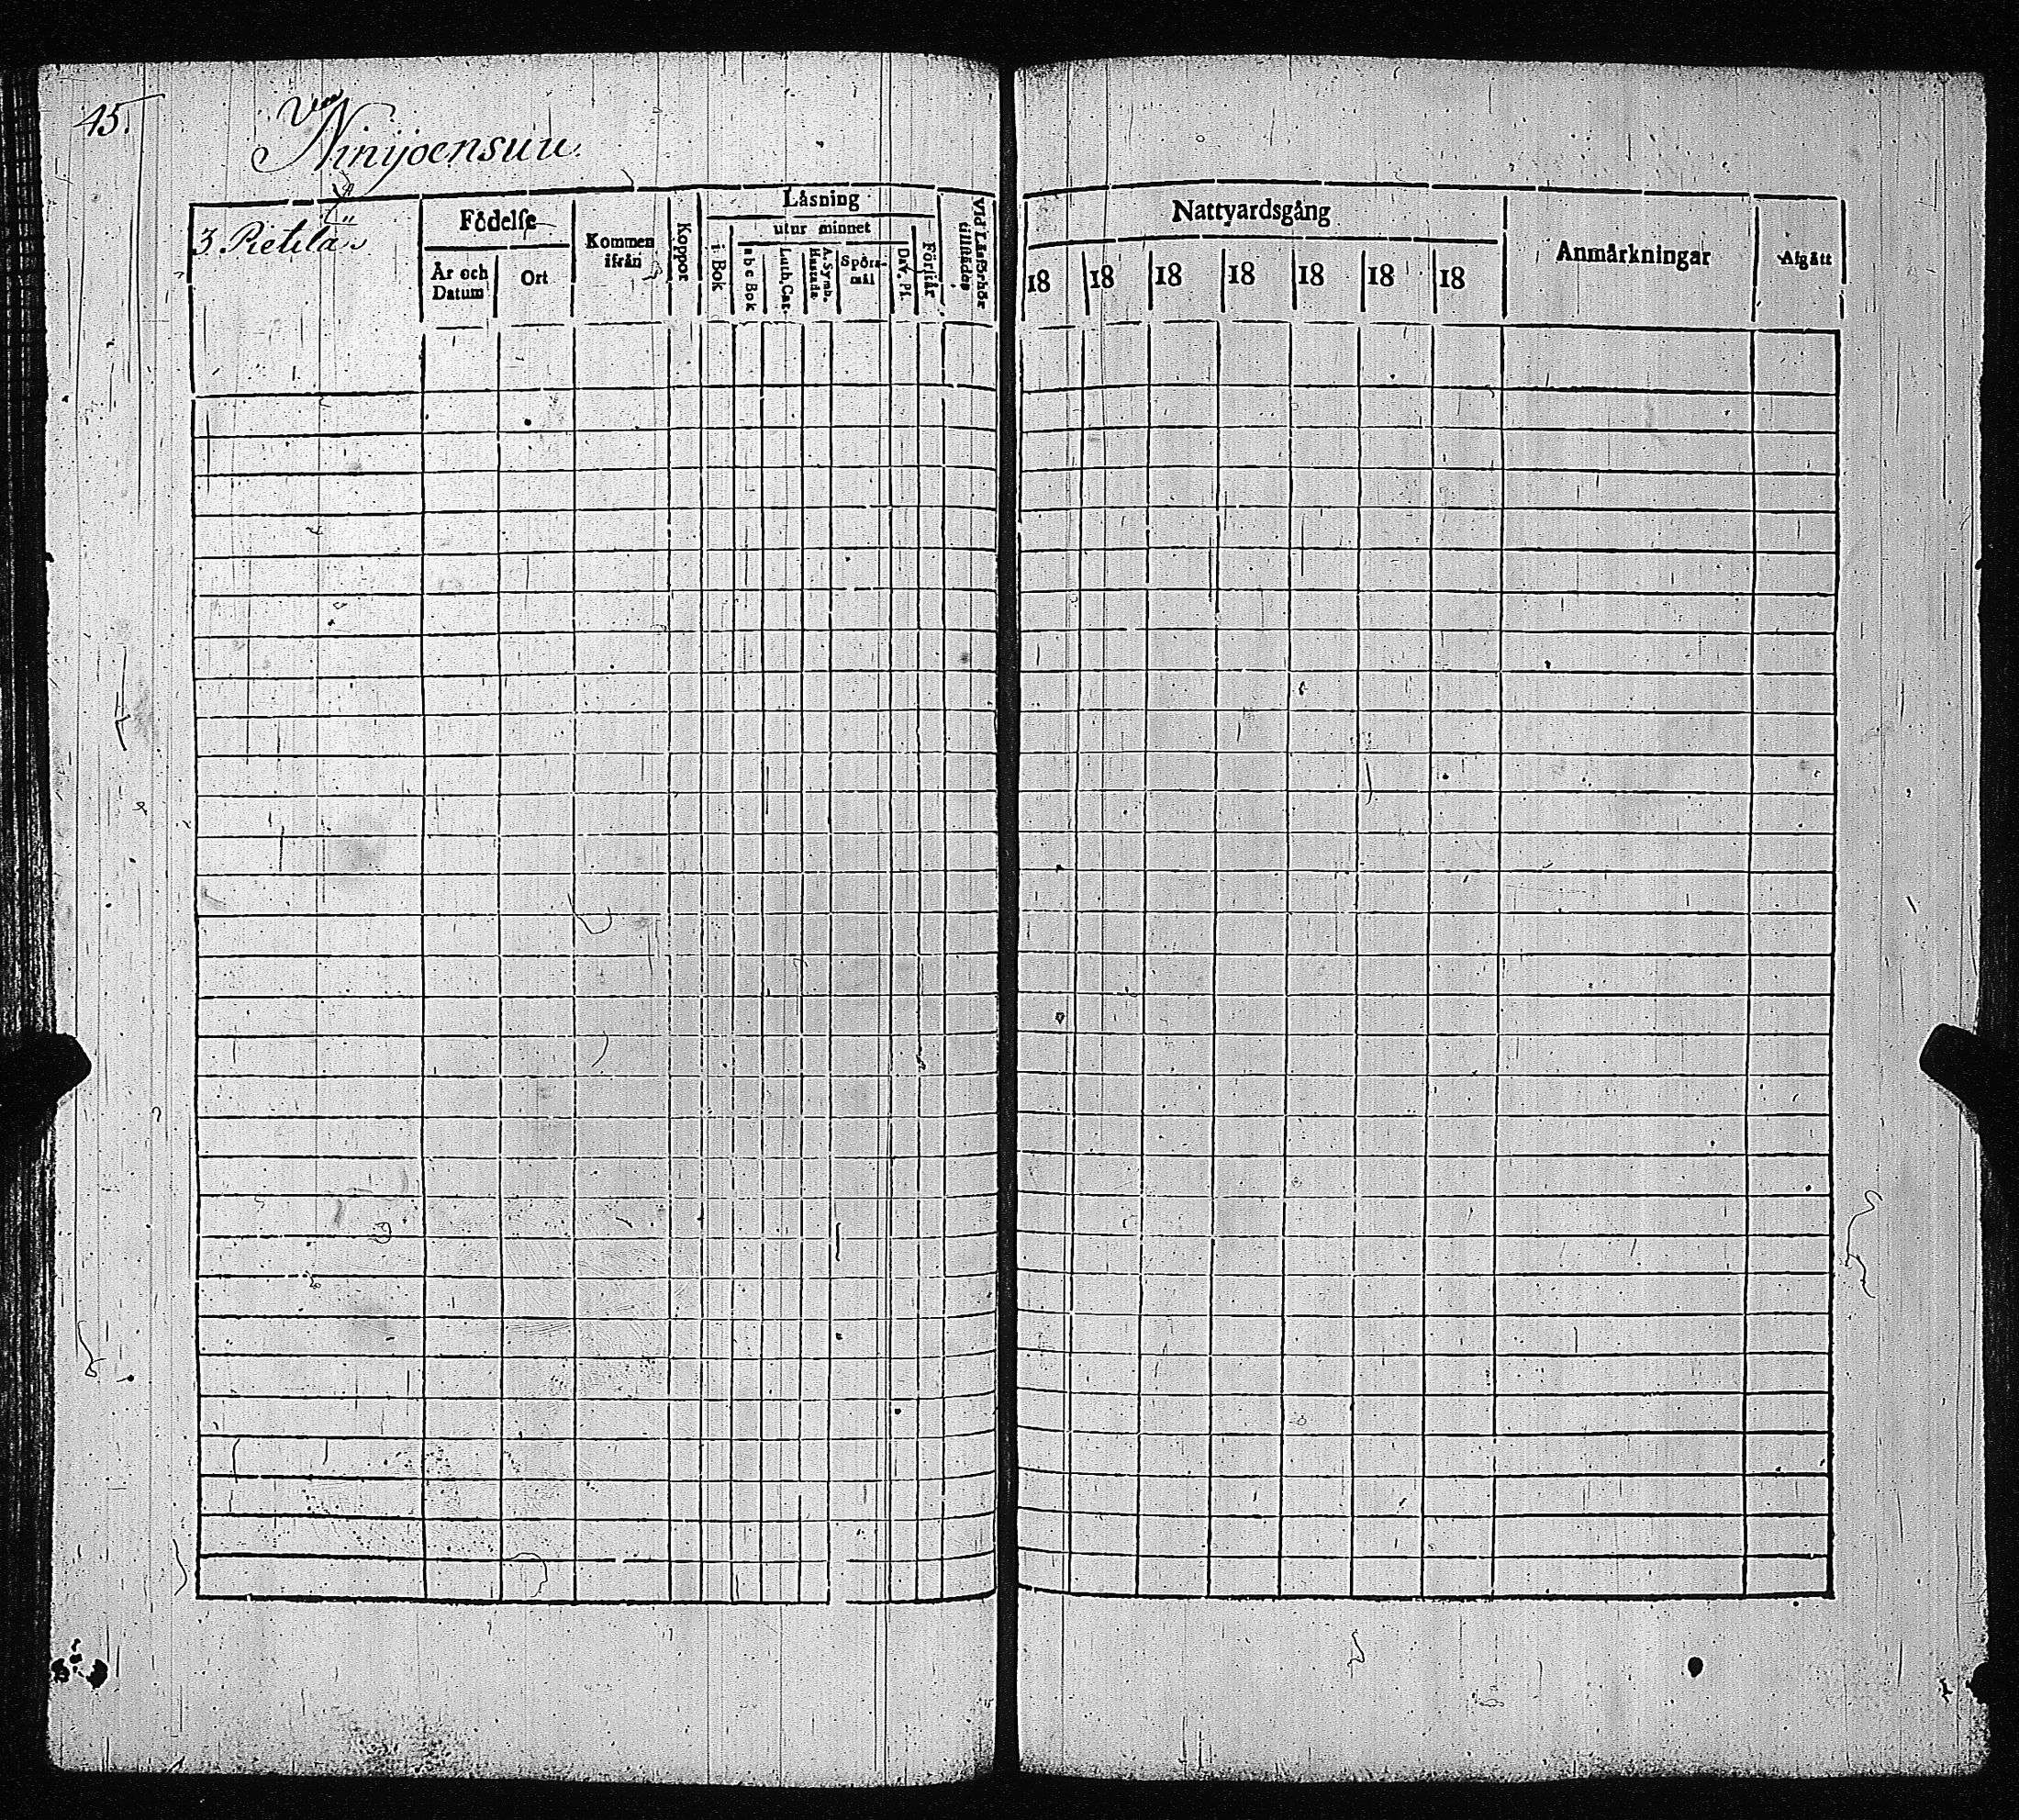 45.
Ninijoensuu
3. Pietilä
Födelse
År och Datum
Ort
Kommen ifrån
Koppor
Läsning
i Bok
utur minnet
a b c Bok
Luth. Cat.
A. Symb. Hustafla
Spörs-mål
Dav. Ps.
Förstår
Vid Läsförhör tillstädes
Nattvardsgång
18 18 18 18 18 18 18
Anmärkningar
Afgått